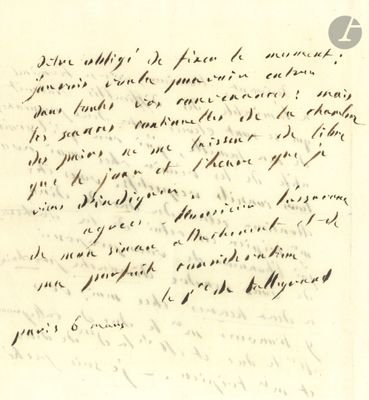 d'être obligé de fixer le moment;
j'aurois voulu pouvoir entrer
dans toutes vos convenances: mais
les séances continuelles de la chambre
des pairs ne me laissent de libre
que le jour et l'heure que je
viens d'indiquer.
agréez Monsieur l'assurance
de mon sincère attachement et de
ma parfaite considération
le pce de talleyrand
paris 6 mars